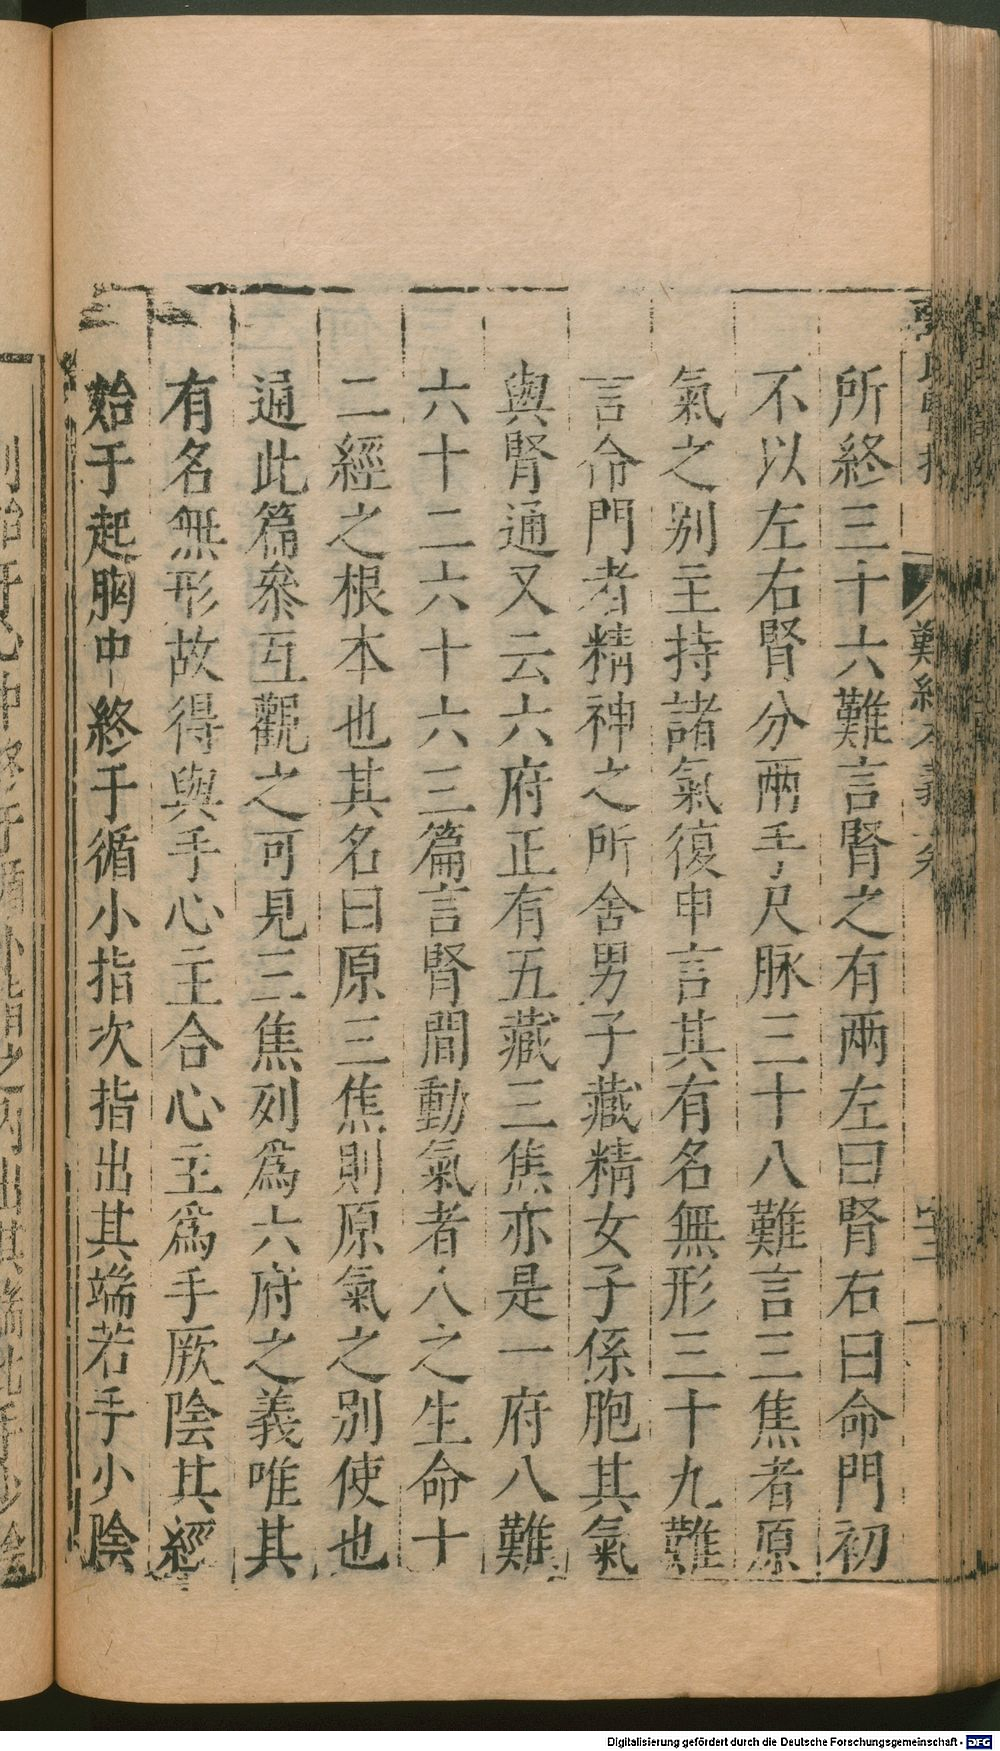 所終三十六難言腎之有兩左曰腎右曰命門初
不以左右腎分兩手尺脉三十八難言三焦者原
氣之别主持諸氣復申言其有名無形三十九難
言命門者精神之所舍男子藏精女子係胞其氣
與腎通又云六府正有五藏三焦亦是一府八難
六十二六十六三篇言腎間動氣者人之生命十
二經之根本也其名曰原三焦則原氣之别使也
通此篇叅互觀之可見三焦列爲六府之義唯其
有名無形故得與手心主合心主爲手厥陰其經
始于起胸中終于循小指次指出其端若手小陰
Digitalisierung gefördert durch die Deutsche Forschungsgemeinschaft - DFG